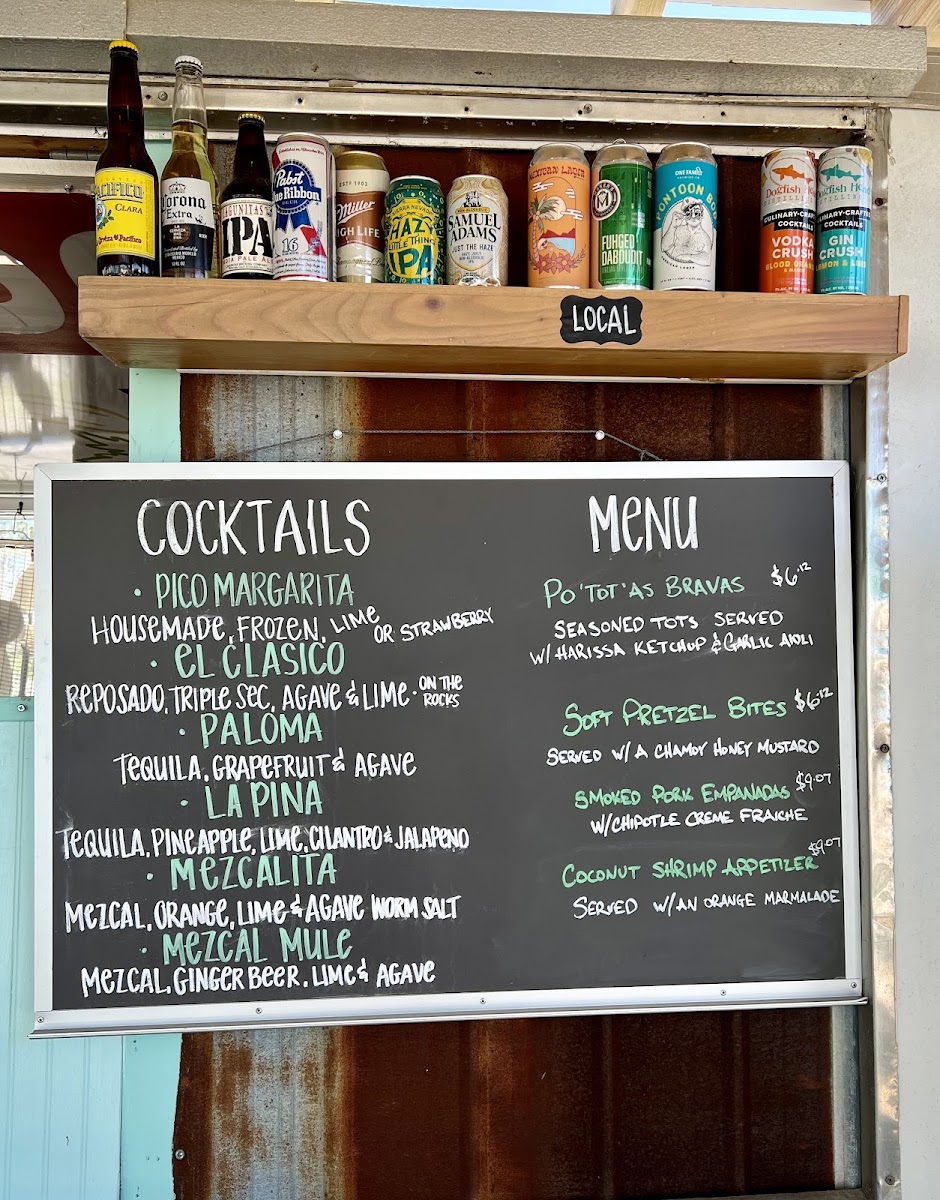 PACIFICO
CLARA
Corona
Extra
LAGUNITAS
IPA
INDIA PALE ALE
Pabst
Blue Ribbon
BEER
16
ESTD 1903
Miller
HIGH LIFE
SIERRA NEVADA
HAZY
LITTLE THING
IPA
NON-ALCOHOLIC
SAMUEL
ADAMS
JUST THE HAZE
MEXICAN LAGER
M
FUHGED
DABOUDIT
ONE FAMILY
PONTOON BOB
Dogfish Head
DISTILLING
CULINARY-CRAFTED
COCKTAILS
VODKA
CRUSH
BLOOD ORANGE
& MANGO
Dogfish Head
CULINARY-CRAFTED
COCKTAILS
GIN
CRUSH
LEMON & LIME
LOCAL
COCKTAILS
• PICO MARGARITA
HOUSEMADE, FROZEN, LIME OR STRAWBERRY
• EL CLASICO
REPOSADO, TRIPLE SEC, AGAVE & LIME • ON THE ROCKS
• PALOMA
TEQUILA, GRAPEFRUIT & AGAVE
• LA PINA
TEQUILA, PINEAPPLE, LIME, CILANTRO & JALAPENO
• MEZCALITA
MEZCAL, ORANGE, LIME & AGAVE WORM SALT
• MEZCAL MULE
MEZCAL, GINGER BEER, LIME & AGAVE
MENU
PO'TOT'AS BRAVAS $6.12
SEASONED TOTS SERVED
W/ HARISSA KETCHUP & GARLIC AIOLI
SOFT PRETZEL BITES $6.12
SERVED W/ A CHAMOY HONEY MUSTARD
SMOKED PORK EMPANADAS $9.07
W/CHIPOTLE CREME FRAICHE
COCONUT SHRIMP APPETIZER $9.07
SERVED W/AN ORANGE MARMALADE